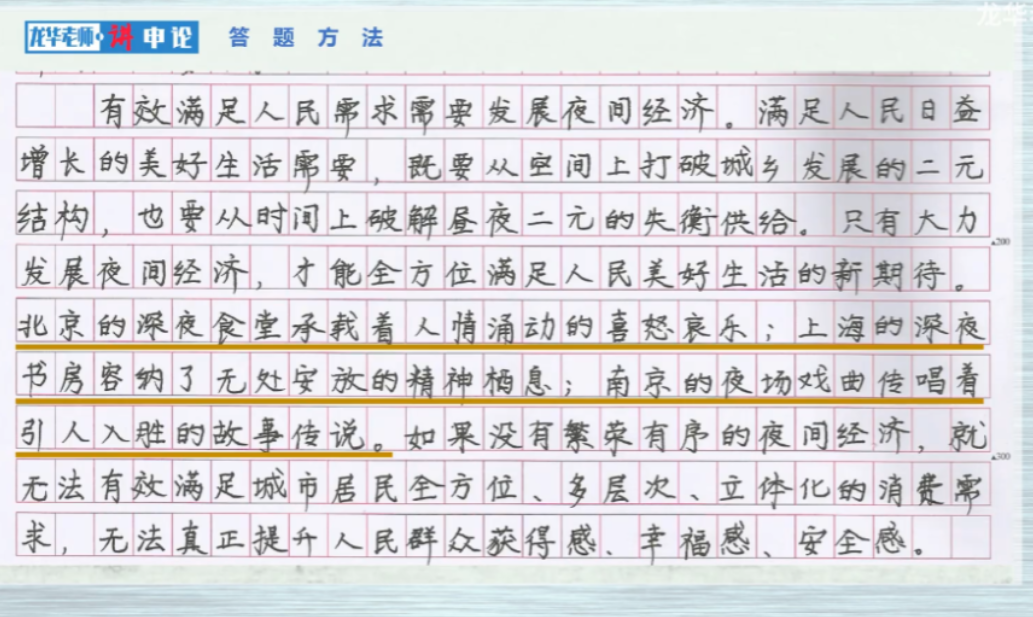 龙华
龙华老师·讲申论 答题方法
有效满足人民需求需要发展夜间经济。满足人民日益
增长的美好生活需要，既要从空间上打破城乡发展的二元
结构，也要从时间上破解昼夜二元的失衡供给。只有大力
▲200
发展夜间经济，才能全方位满足人民美好生活的新期待。
北京的深夜食堂承载着人情涌动的喜怒哀乐；上海的深夜
书房容纳了无处安放的精神栖息；南京的夜场戏曲传唱着
引人入胜的故事传说。如果没有繁荣有序的夜间经济，就
▲300
无法有效满足城市居民全方位、多层次、立体化的消费需
求，无法真正提升人民群众获得感、幸福感、安全感。